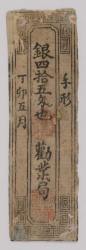 手形
銀四拾五匁也
勸業局
丁卯五月